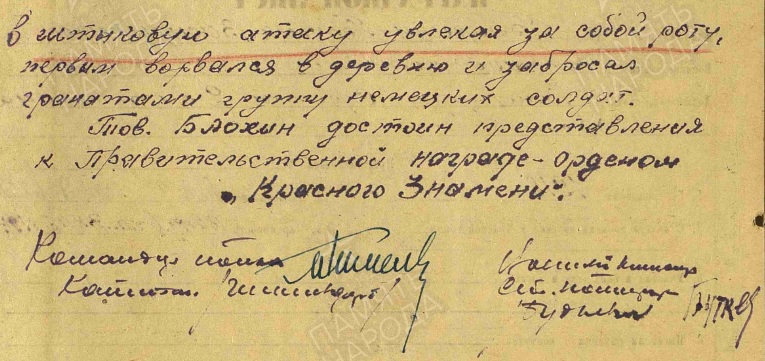 в штыковую атаку увлекая за собой роту,
первым ворвался в деревню и забросал
гранатами группу немецких солдат.
Тов. Блохин достоин представления
к Правительственной награде - орденом
„Красного Знамени".
Командир
Капитан
ПАМЯТЬ
НАРОДА